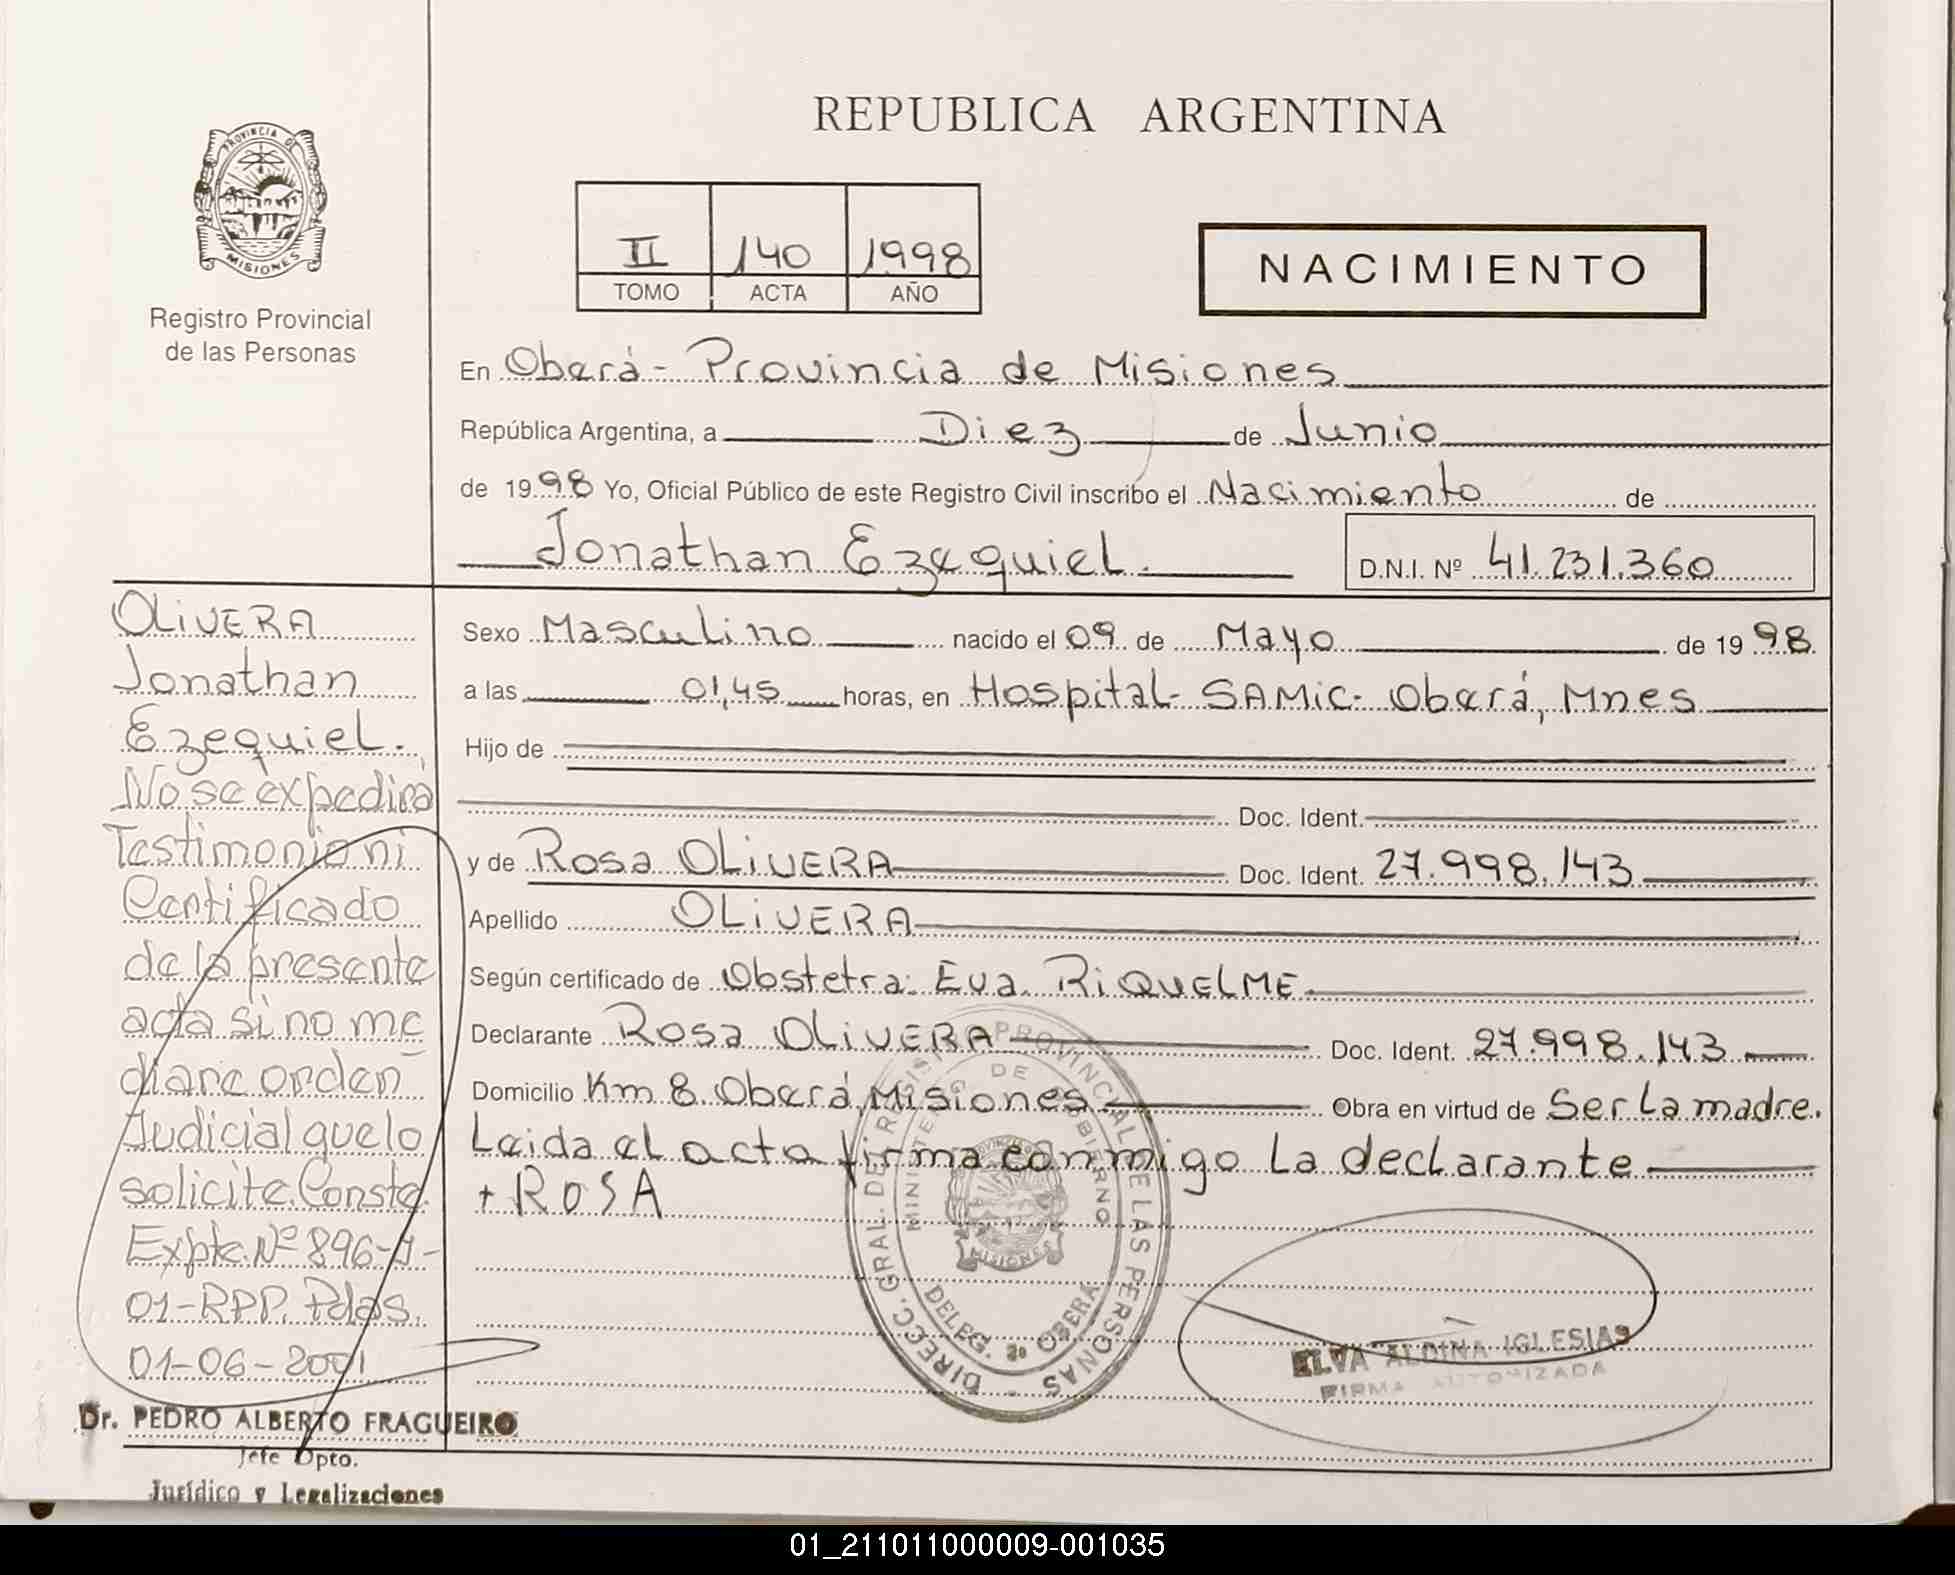 REPUBLICA ARGENTINA
PROVINCIA DE
MISIONES
Registro Provincial
de las Personas
II 140 1998
TOMO ACTA AÑO
NACIMIENTO
En Oberá - Provincia de Misiones
República Argentina, a Diez de Junio
de 1998 Yo, Oficial Público de este Registro Civil inscribo el Nacimiento de
Jonathan Ezequiel. D.N.I. Nº 41.231.360
OLIVERA
Jonathan
Ezequiel.
No se expedirá
Testimonio ni
Certificado
de la presente
acta si no me
diare orden
Judicial que lo
solicite. Conste.
Expte. Nº 896-J-
01-RPP. Pdas.
01-06-2001
Dr. PEDRO ALBERTO FRAGUEIRO
Jefe Dpto.
Jurídico y Legalizaciones
Sexo Masculino nacido el 09 de Mayo de 1998
a las 01,45 horas, en Hospital - SAMIC - Oberá, Mnes
Hijo de
Doc. Ident.
y de Rosa OLIVERA Doc. Ident. 27.998.143
Apellido OLIVERA
Según certificado de Obstetra: Eva RIQUELME.
Declarante Rosa OLIVERA Doc. Ident. 27.998.143
Domicilio Km 8 Oberá, Misiones Obra en virtud de Ser La madre.
Leida el acta firma conmigo la declarante
+ ROSA
DIRECC. GRAL. DEL REGISTRO PROVINCIAL DE LAS PERSONAS
MINISTERIO DE GOBIERNO
MISIONES
DELEG. 2a OBERA
ELVA ALDINA IGLESIAS
FIRMA AUTORIZADA
01_211011000009-001035